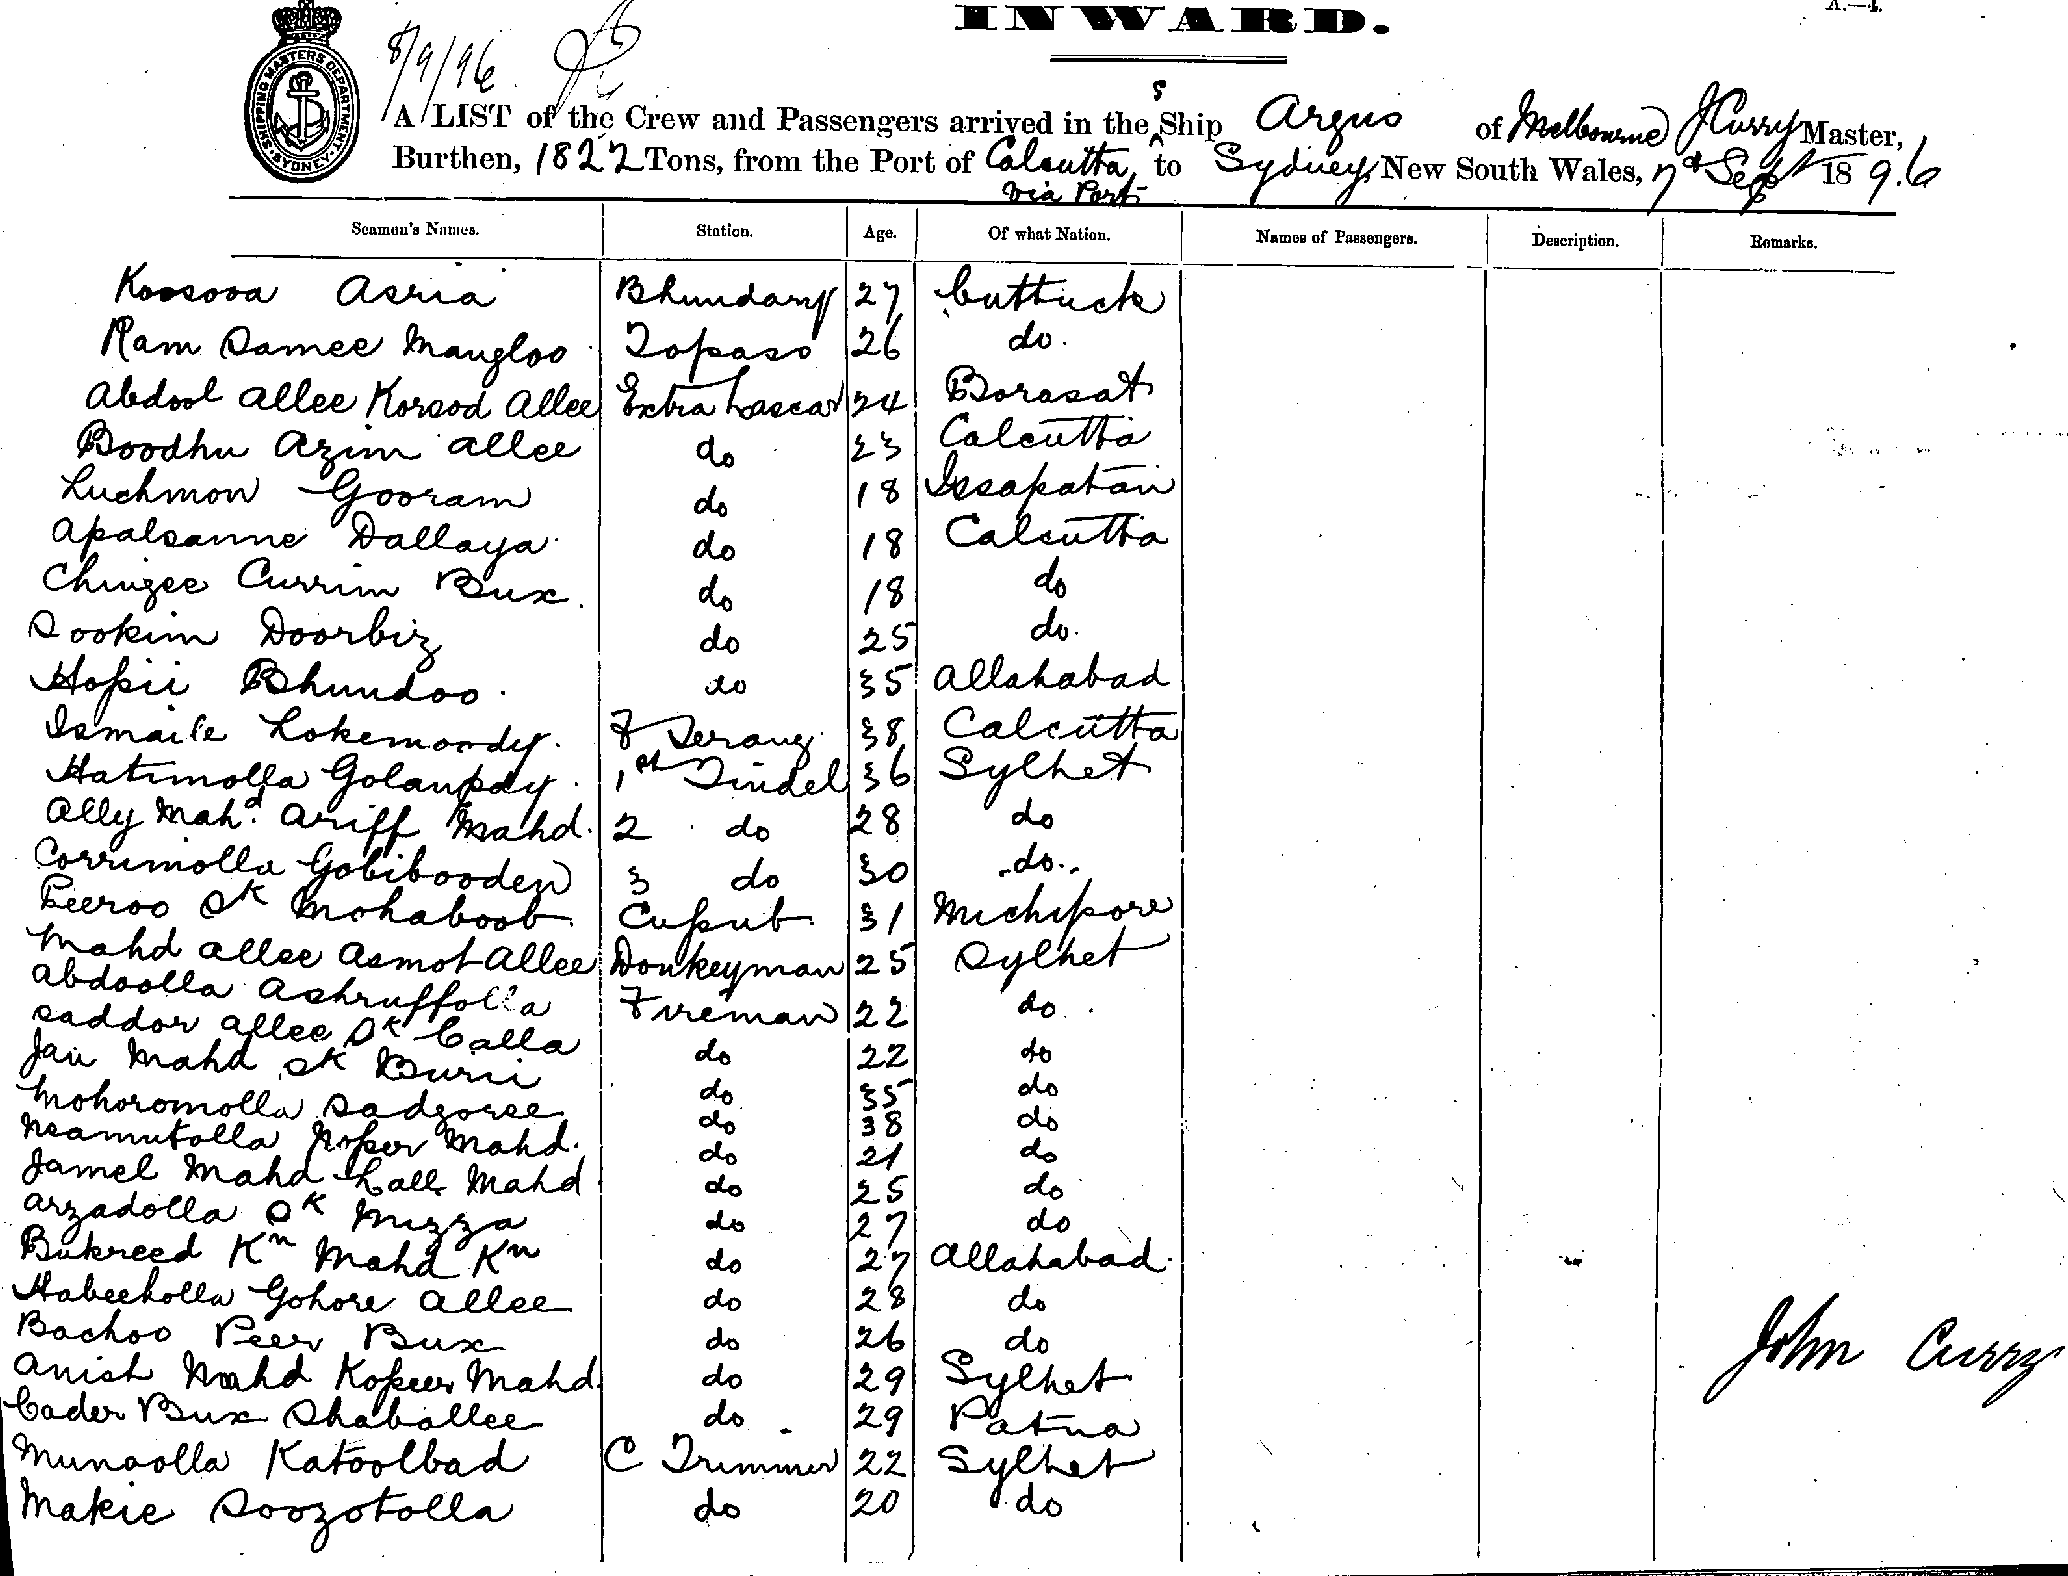 INWARD.
A.—4.
8/9/96
SHIPPING MASTERS DEPARTMENT SYDNEY
s
A LIST of the Crew and Passengers arrived in the ^ Ship Argus of Melbourne J Curry Master,
Burthen, 1822 Tons, from the Port of Calcutta to Sydney, New South Wales, 7th Sept 1896
via Ports
Seamen's Names. Station. Age. Of what Nation. Names of Passengers. Description. Remarks.
Koosova Asria Bhundary 27 Cuttuck
Ram Samee Maugloo Topaso 26 do.
Abdool Allee Korsod Allee Extra Lascar 24 Borasat
Boodhu Azim Allee do 23 Calcutta
Luchmon Gooram do 18 Issapatan
Apalsanne Dallaya do 18 Calcutta
Chingee Currim Bux. do 18 do
Sookim Doorbiz do 25 do.
Hopii Bhundoo do 35 Allahabad
Ismaile Lokemoody. F Serang 38 Calcutta
Hatimolla Golanpdy. 1st Tindel 36 Sylhet
Ally Mahd. Ariff Mahd. 2 do 28 do
Corrimolla Gobibooden 3 do 30 do..
Peeroo Sk Mohaboob Cupub 31 Michipore
Mahd Allee Asmot Allee Donkeyman 25 Sylhet
Abdoolla Ashruffolla Fireman 22 do
Saddor Allee Sk Calla do 22 do
Jau Mahd Sk Burii do 35 do
Mohoromolla Sadgoree do 38 do
Neamutolla Noper Mahd. do 21 do
Jamel Mahd Lall Mahd do 25 do
Arzadolla Sk Mizza do 27 do
Bukreed Kn Mahd Kn do 27 Allahabad
Habeebolla Gohore Allee do 28 do
Bachoo Peer Bux do 26 do
Anish Mahd Kopeer Mahd. do 29 Sylhet
Cader Bux Shaballee do 29 Patna
Munsolla Katoolbad C Trimmer 22 Sylhet
Makie Soozotolla do 20 do
John Curry